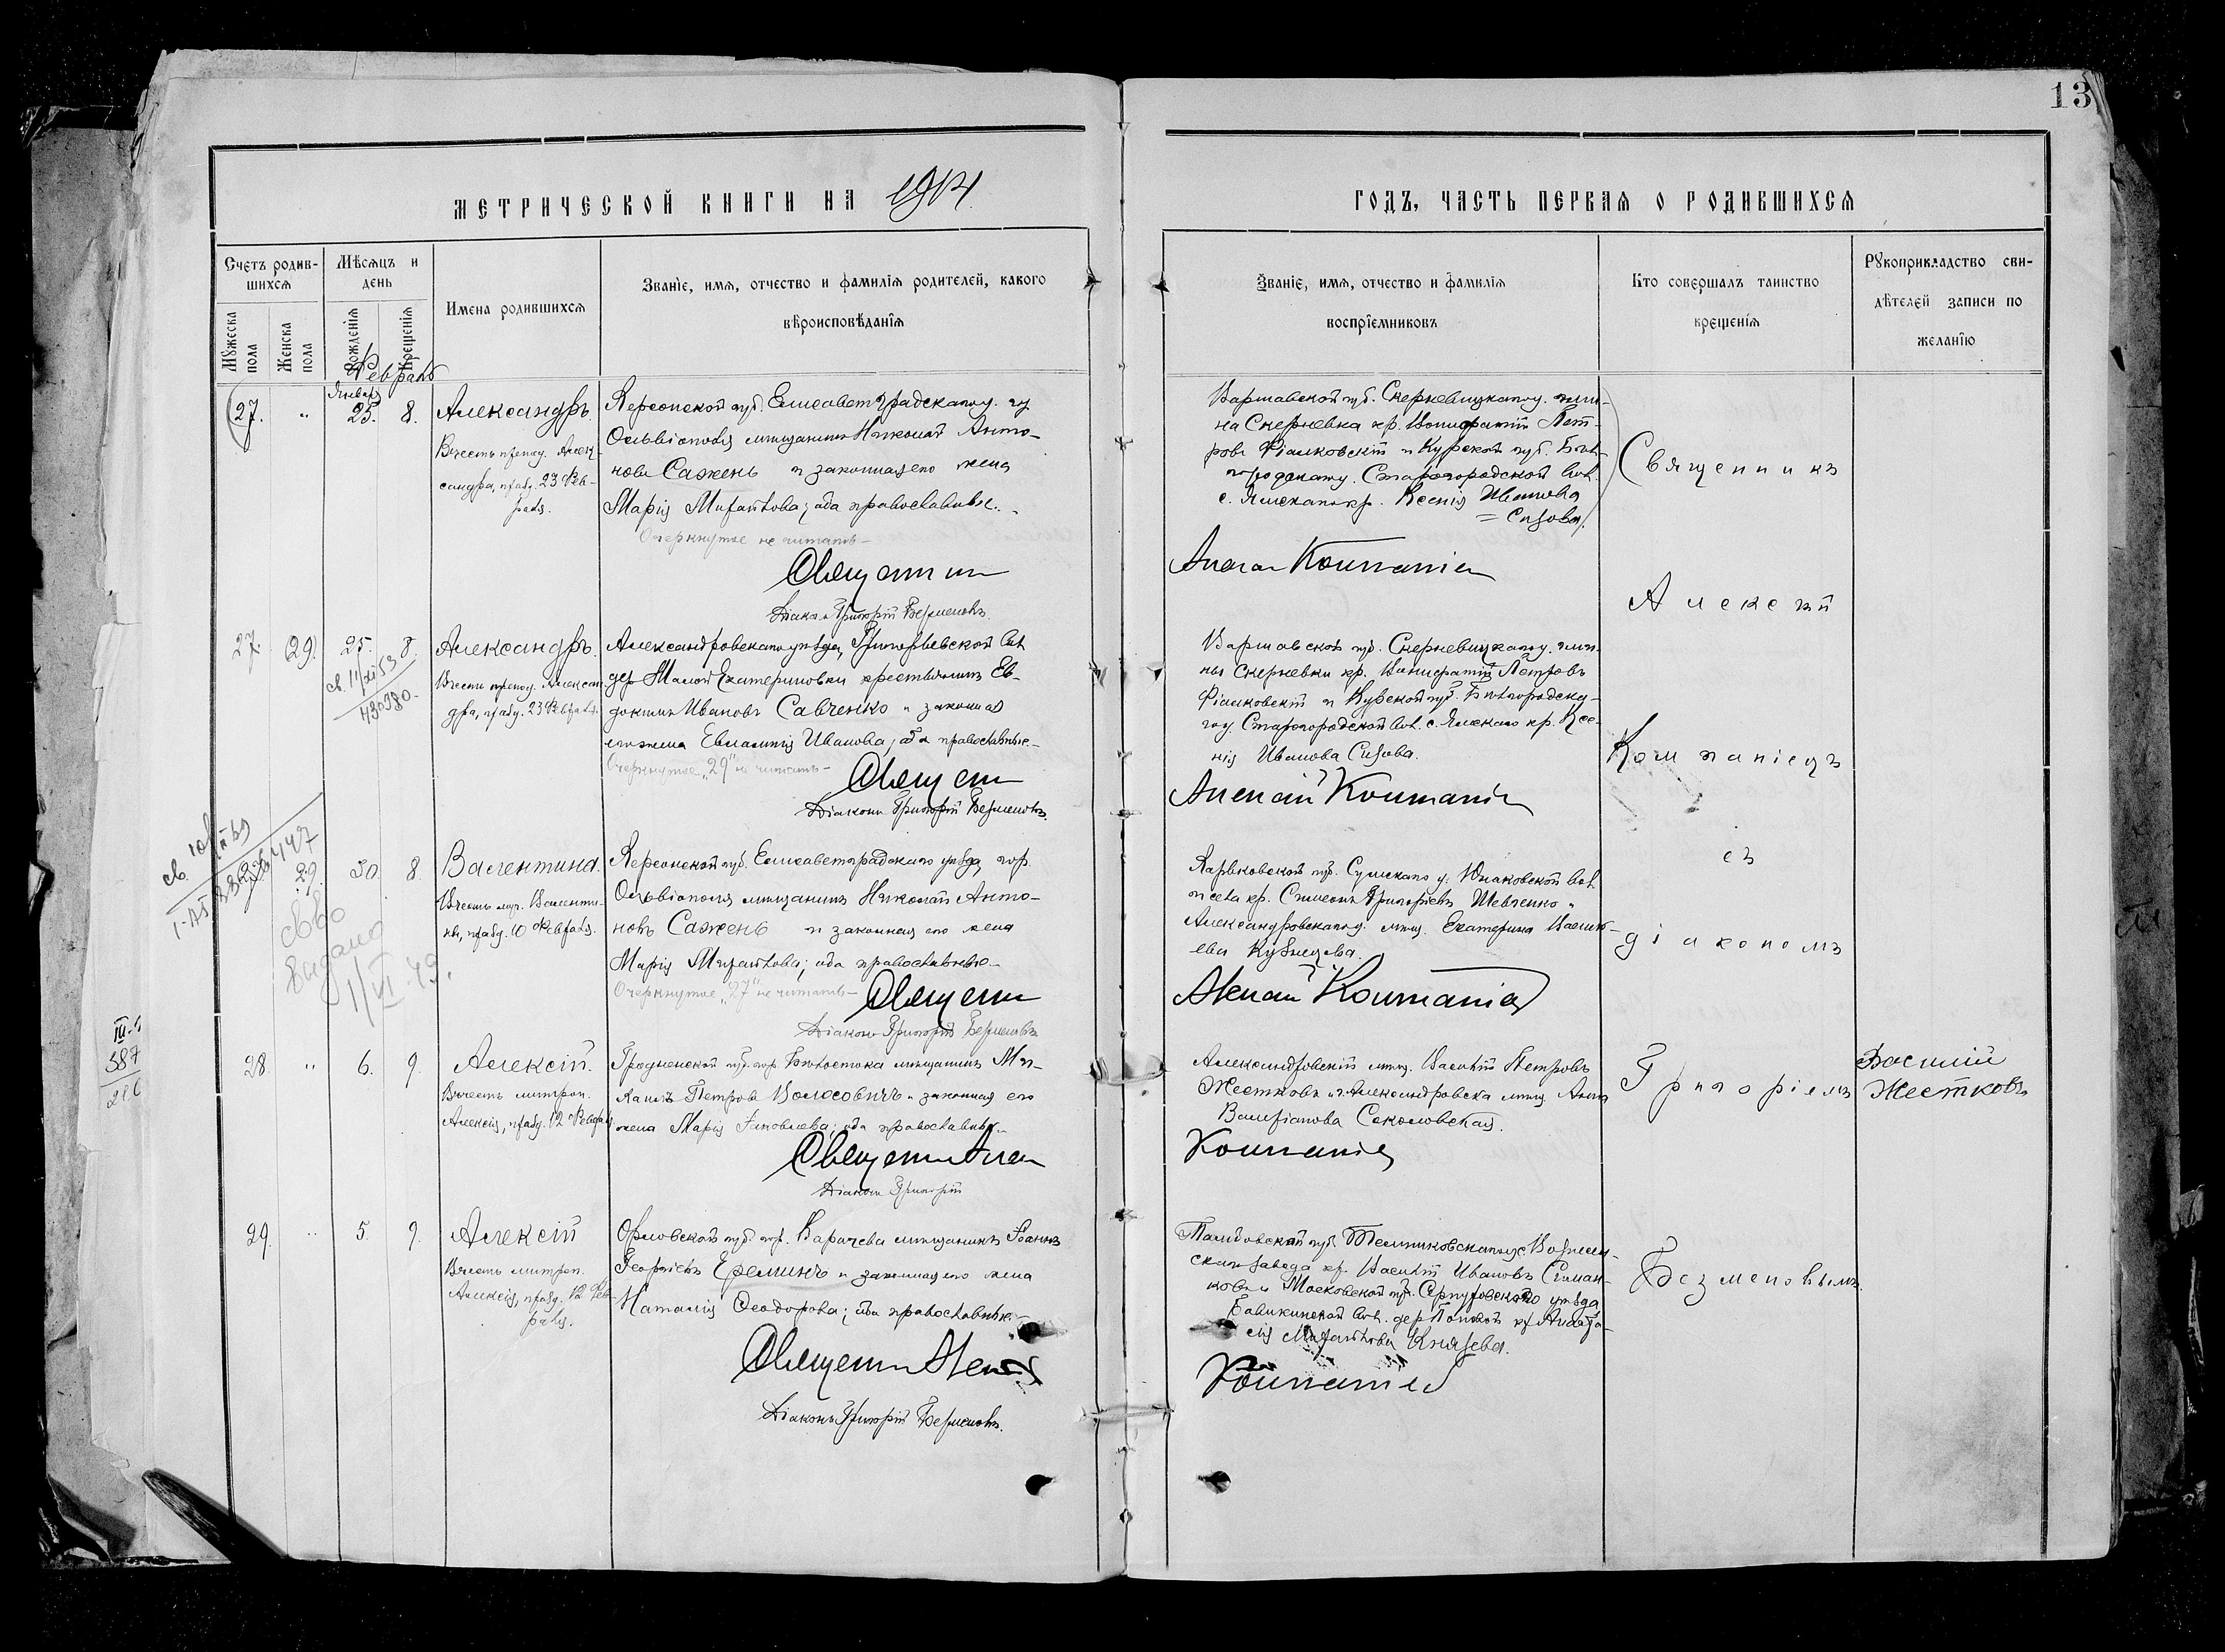 13
МЕТРИЧЕСКОЙ КНИГИ НА 1914
ГОДЪ, ЧАСТЬ ПЕРВАЯ О РОДИВШИХСЯ
Счетъ родив-
шихся
Мѣсяцъ и
день
Мужеска
пола
Женска
пола
Рожденія
Крещенія
Имена родившихся
Званіе, имя, отчество и фамилія родителей, какого
вѣроисповѣданія
Званіе, имя, отчество и фамилія
воспріемниковъ
Кто совершалъ таинство
крещенія
Рукоприкладство сви-
дѣтелей записи по
желанію
Февраль
Января
27. " 25. 8. Александръ.
Въ честь препод. Алек-
сандра, празд. 23 Фев-
раля.
Херсонской губ. Елисаветградскаго у. г.
Ольвіополя мѣщанинъ Николай Анто-
новъ Сажень и законная его жена
Марія Михайлова; оба православные.
Очеркнутое не читать
Священник
Діаконъ Григорій Безменовъ
Варшавской губ. Скерневицкаго у. гми-
на Скерневка кр. Бонифатій Пет-
ровъ Фіалковскій и Курской губ. Бѣл-
городскаго у. Старогородской вол.
с. Ямскаго кр. Ксенія Иванова
= Сизова.
Компаніец
27. 29. 25. 8. Александръ.
св. 11/XI 53
430980
Въ честь препод. Алексан-
дра, празд. 23 Февраля.
Александровскаго уѣзда, Григорьевской вол.
дер. Малой Екатериновки крестьянинъ Ев-
докимъ Ивановъ Савченко и законная
его жена Евлампія Иванова; оба православные.
Очеркнутое "29" не читать
Священ
Діаконъ Григорій Безменовъ.
Варшавской губ. Скерневицкаго у. гми-
ны Скерневки кр. Бонифатій Петровъ
Фіалковскій и Курской губ. Бѣлгородска-
го у. Старогородской вол. с. Ямскаго кр. Ксе-
нія Иванова Сизова.
Алексій Компаніец
29. 30. 8. Валентина.
св-во
выдано
1/VI 49.
Въ честь муч. Валенти-
ны, празд. 10 Февраля.
Херсонской губ. Елисаветградскаго уѣзда, гор.
Ольвіополя мѣщанинъ Николай Анто-
новъ Сажень и законная его жена
Марія Михайлова; оба православные
Очеркнутое "27" не читать
Священ
Діаконъ Григорій Безменовъ
Харьковской губ. Сумскаго у. Юнаковской вол.
и села кр. Симеонъ Григорьевъ Шевченко и
Александровская мѣщ. Екатерина Василь-
ева Кузнецова.
Алексій Компаніец
III-
587
28. " 6. 9. Алексій.
Въ честь митроп.
Алексія, празд. 12 Февраля
Гродненской губ. гор. Бѣлостока мѣщанинъ Ми-
хаилъ Петровъ Волосовичъ и законная его
жена Марія Яковлева; оба православные.
Священник Алек
Діаконъ Григорій
Александровскій мѣщ. Василій Петровъ
Жестковъ и г. Александровска мѣщ. Анна
Валеріанова Соколовская.
Компаніец
29. " 5. 9. Алексій
Въ честь митроп.
Алексія, празд. 12 Фев-
раля.
Орловской губ. гор. Карачева мѣщанинъ Іоаннъ
Георгіевъ Ереминъ и законная его жена
Наталія Ѳеодорова; оба православные.
Священник Алексій
Діаконъ Григорій Безменовъ.
Тамбовской губ. Темниковскаго у. с. Вознесен-
скаго завода кр. Василій Ивановъ
и Московской губ. Серпуховскаго уѣзда
Бавыкинской вол. дер. кр. Анаста-
сія Михайлова Князева.
Компаніец
Священникъ
Алексій
Компаніецъ
съ
діакономъ
Григоріемъ
Безменовымъ.
Василій
Жестковъ